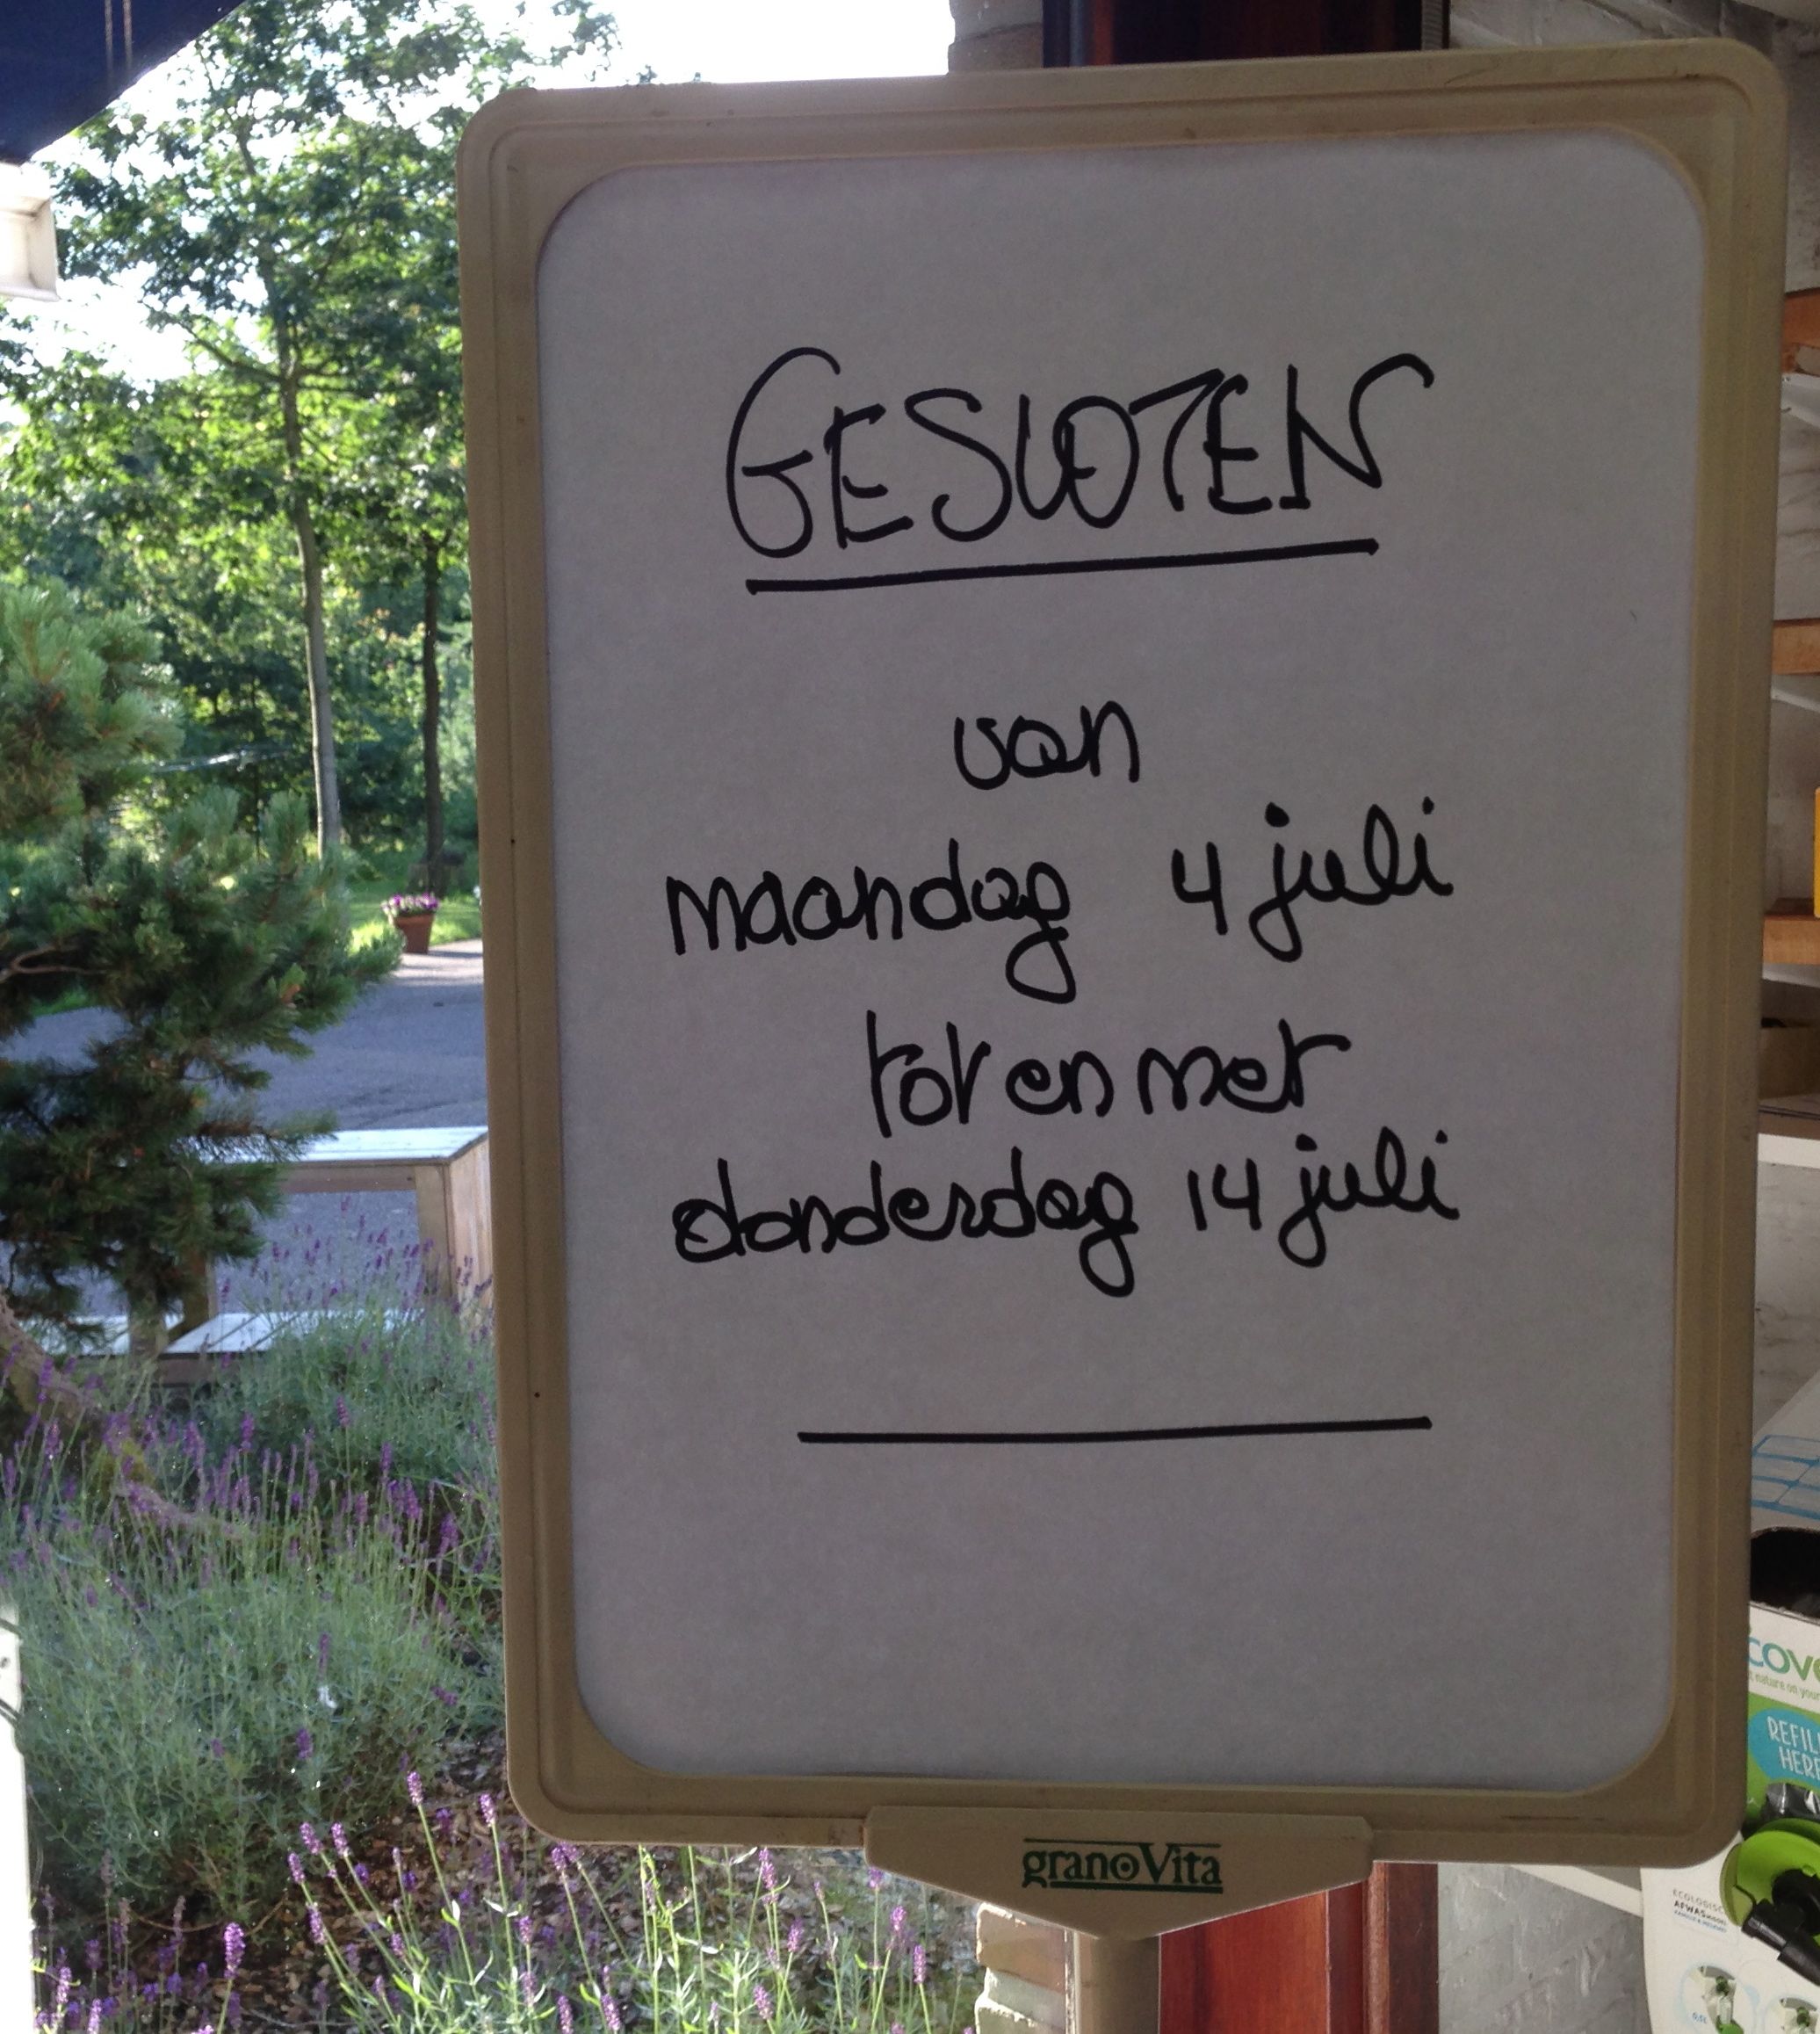 GESLOTEN
van
maandag 4 juli
tot en met
donderdag 14 juli
granoVita
REFILL
HERE